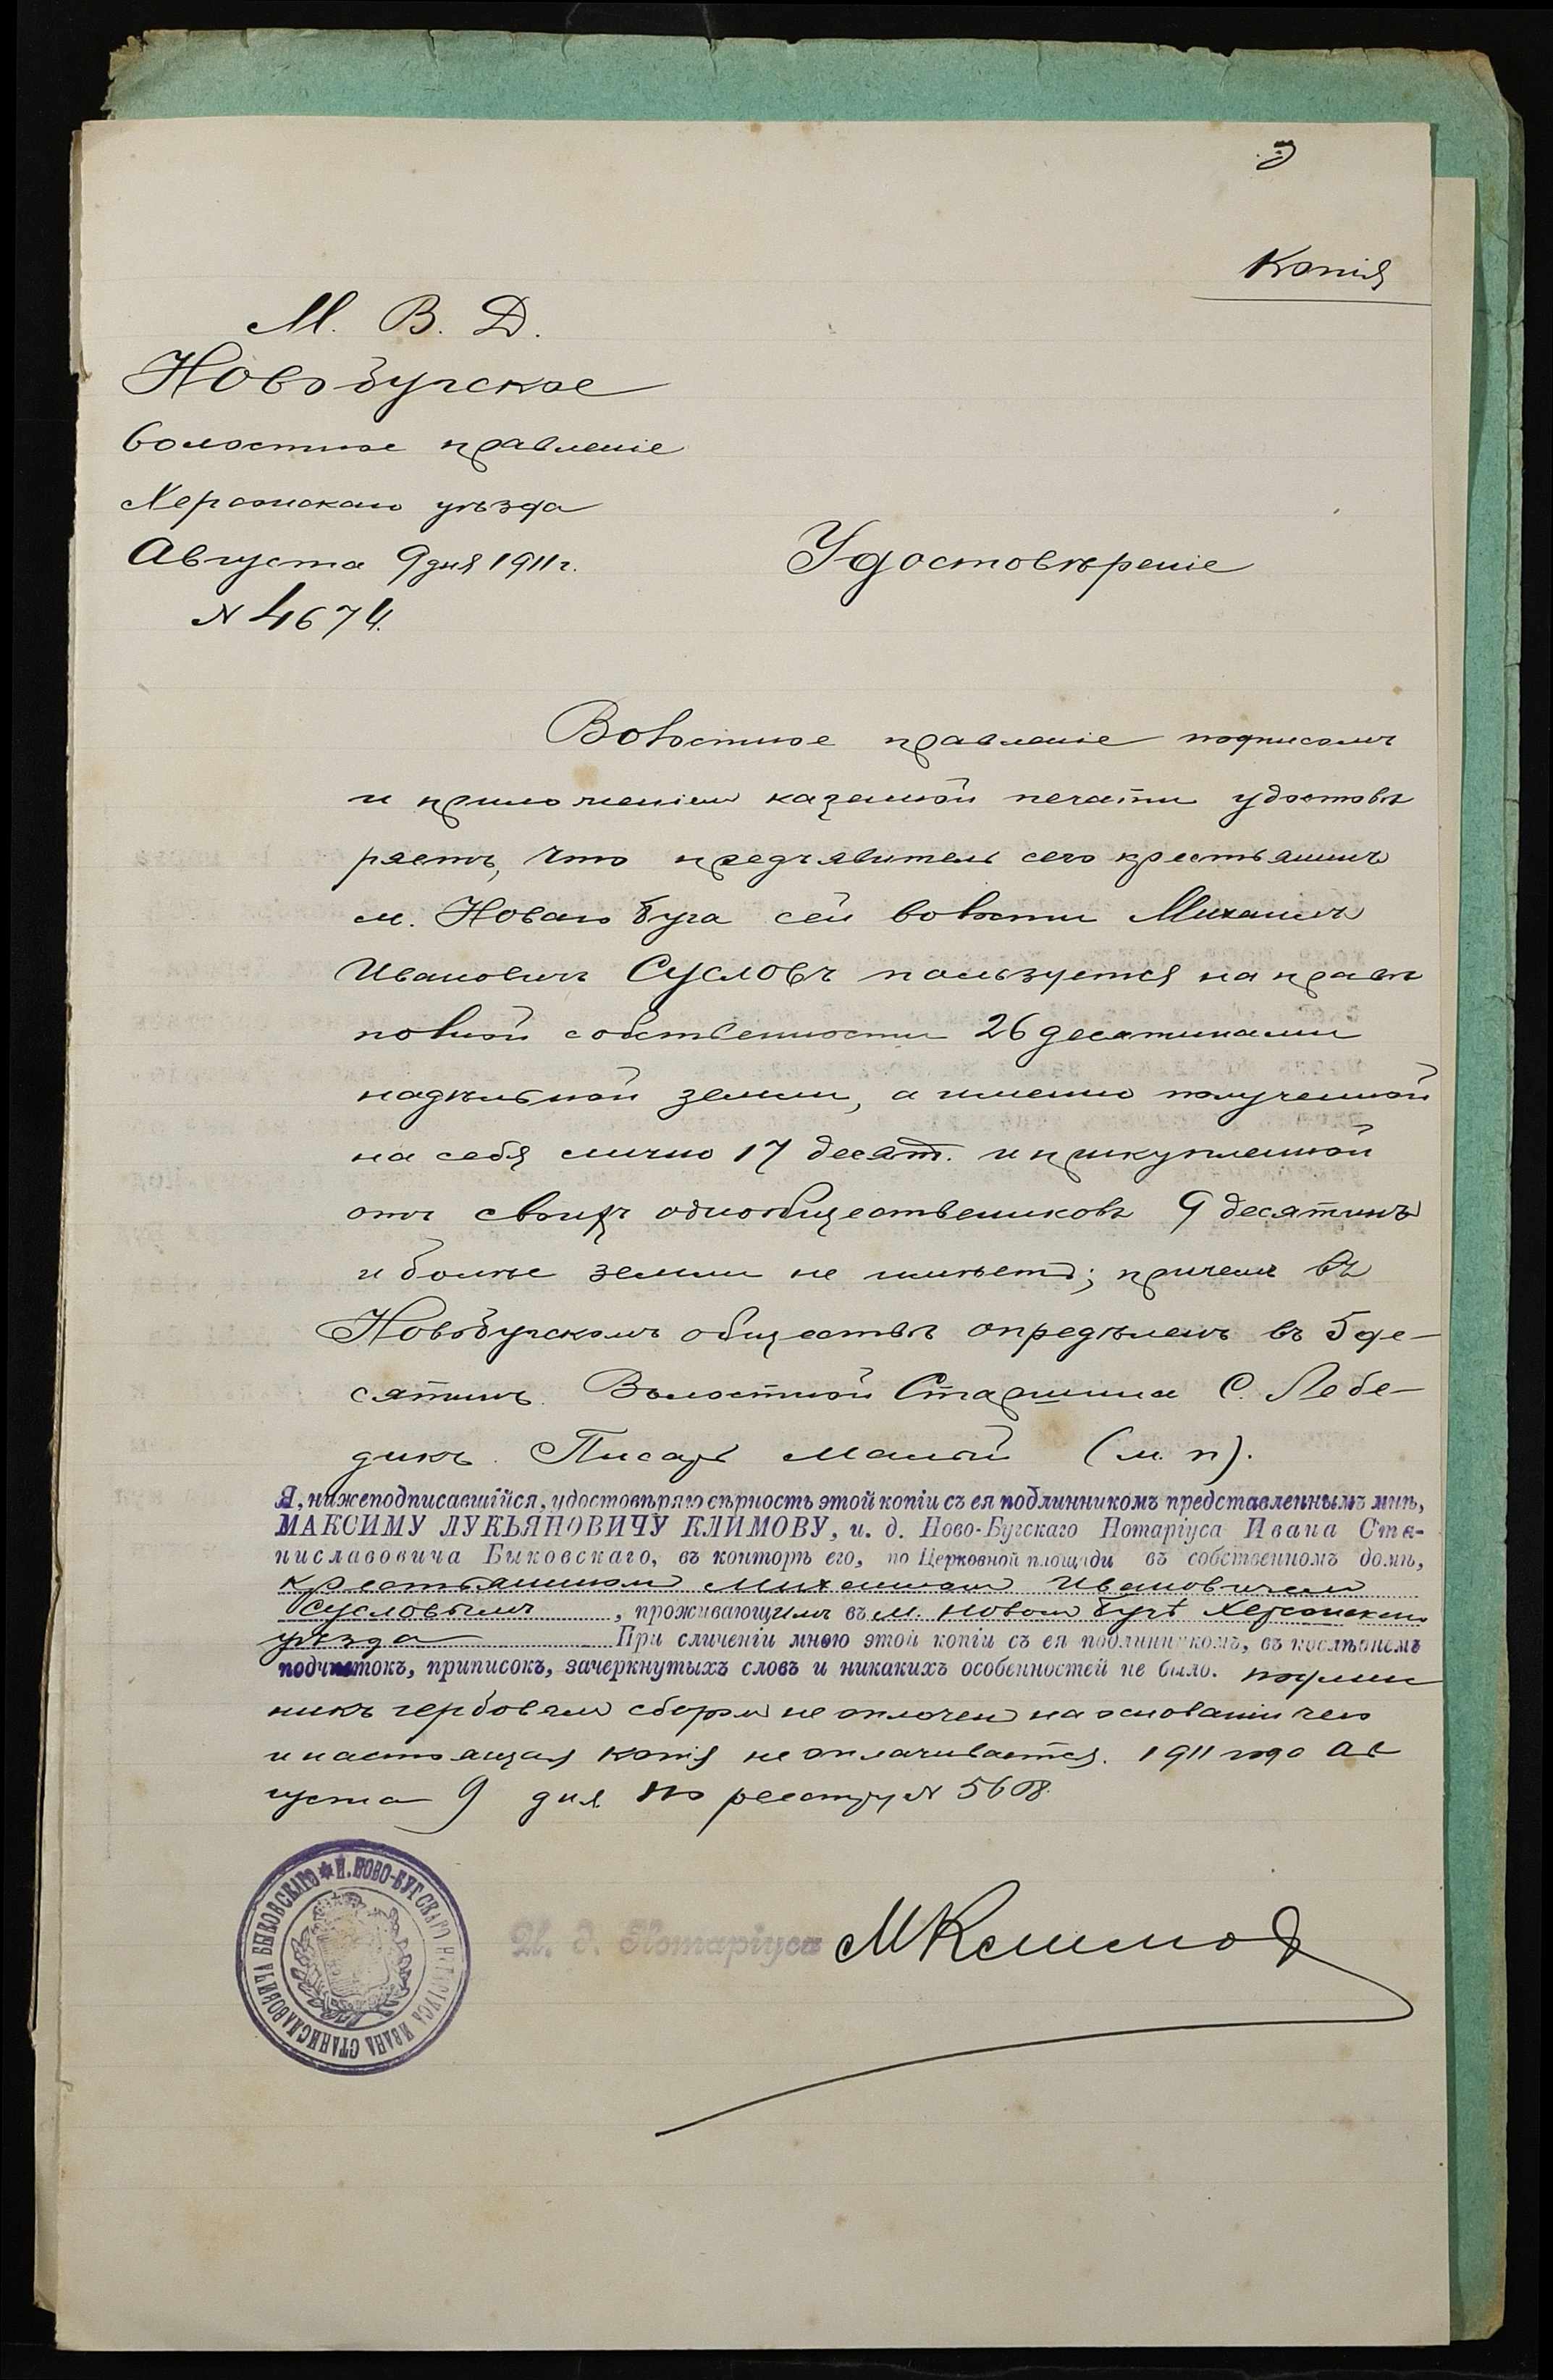 Копія
М. В. Д.
Новобугское
волостное правленіе
Херсонскаго уѣзда
Августа 9 дня 1911 г.
N 4674.
Удостовѣреніе
Волостное правленіе подписомъ
и приложеніем казенной печати удостовѣ
ряетъ, что предъявитель сего крестьянинъ
м. Новаго Буга сей волости Михаилъ
Ивановичъ Сусловъ пользуется на правѣ
полной собственности 26 десятинами
надѣльной земли, а именно полученной
на себя лично 17 десят. и прикупленной
отъ своихъ однообщественниковъ 9 десятинъ
и болѣе земли не имѣетъ; причемъ въ
Новобугскомъ обществѣ опредѣленъ въ 5 де-
сятинъ. Волостной Старшина С. Лебе-
динъ. Писарь Малый (м. п).
Я, нижеподписавшійся, удостовѣряю вѣрность этой копіи съ ея подлинникомъ представленнымъ мнѣ,
МАКСИМУ ЛУКЬЯНОВИЧУ КЛИМОВУ, и. д. Ново-Бугскаго Нотаріуса Ивана Ста-
ниславовича Быковскаго, въ конторѣ его, по Церковной площади въ собственномъ домѣ,
крестьянином Михаилом Ивановичем
Сусловымъ, проживающимъ въ м. Новом Бугѣ Херсонскаго
уѣзда При сличеніи мною этой копіи съ ея подлинникомъ, въ послѣднемъ
подчистокъ, приписокъ, зачеркнутыхъ словъ и никакихъ особенностей не было. Подлин
никъ гербовым сбором не оплочен на основаніи чего
и настоящая копія не оплачивается. 1911 года Ав
густа 9 дня По реестру N 5608.
И. д. Нотаріуса МКлимов
Н. НОВО-БУГСКАГО НОТАРІУСА ИВАНА СТАНИСЛАВОВИЧА БЫКОВСКАГО